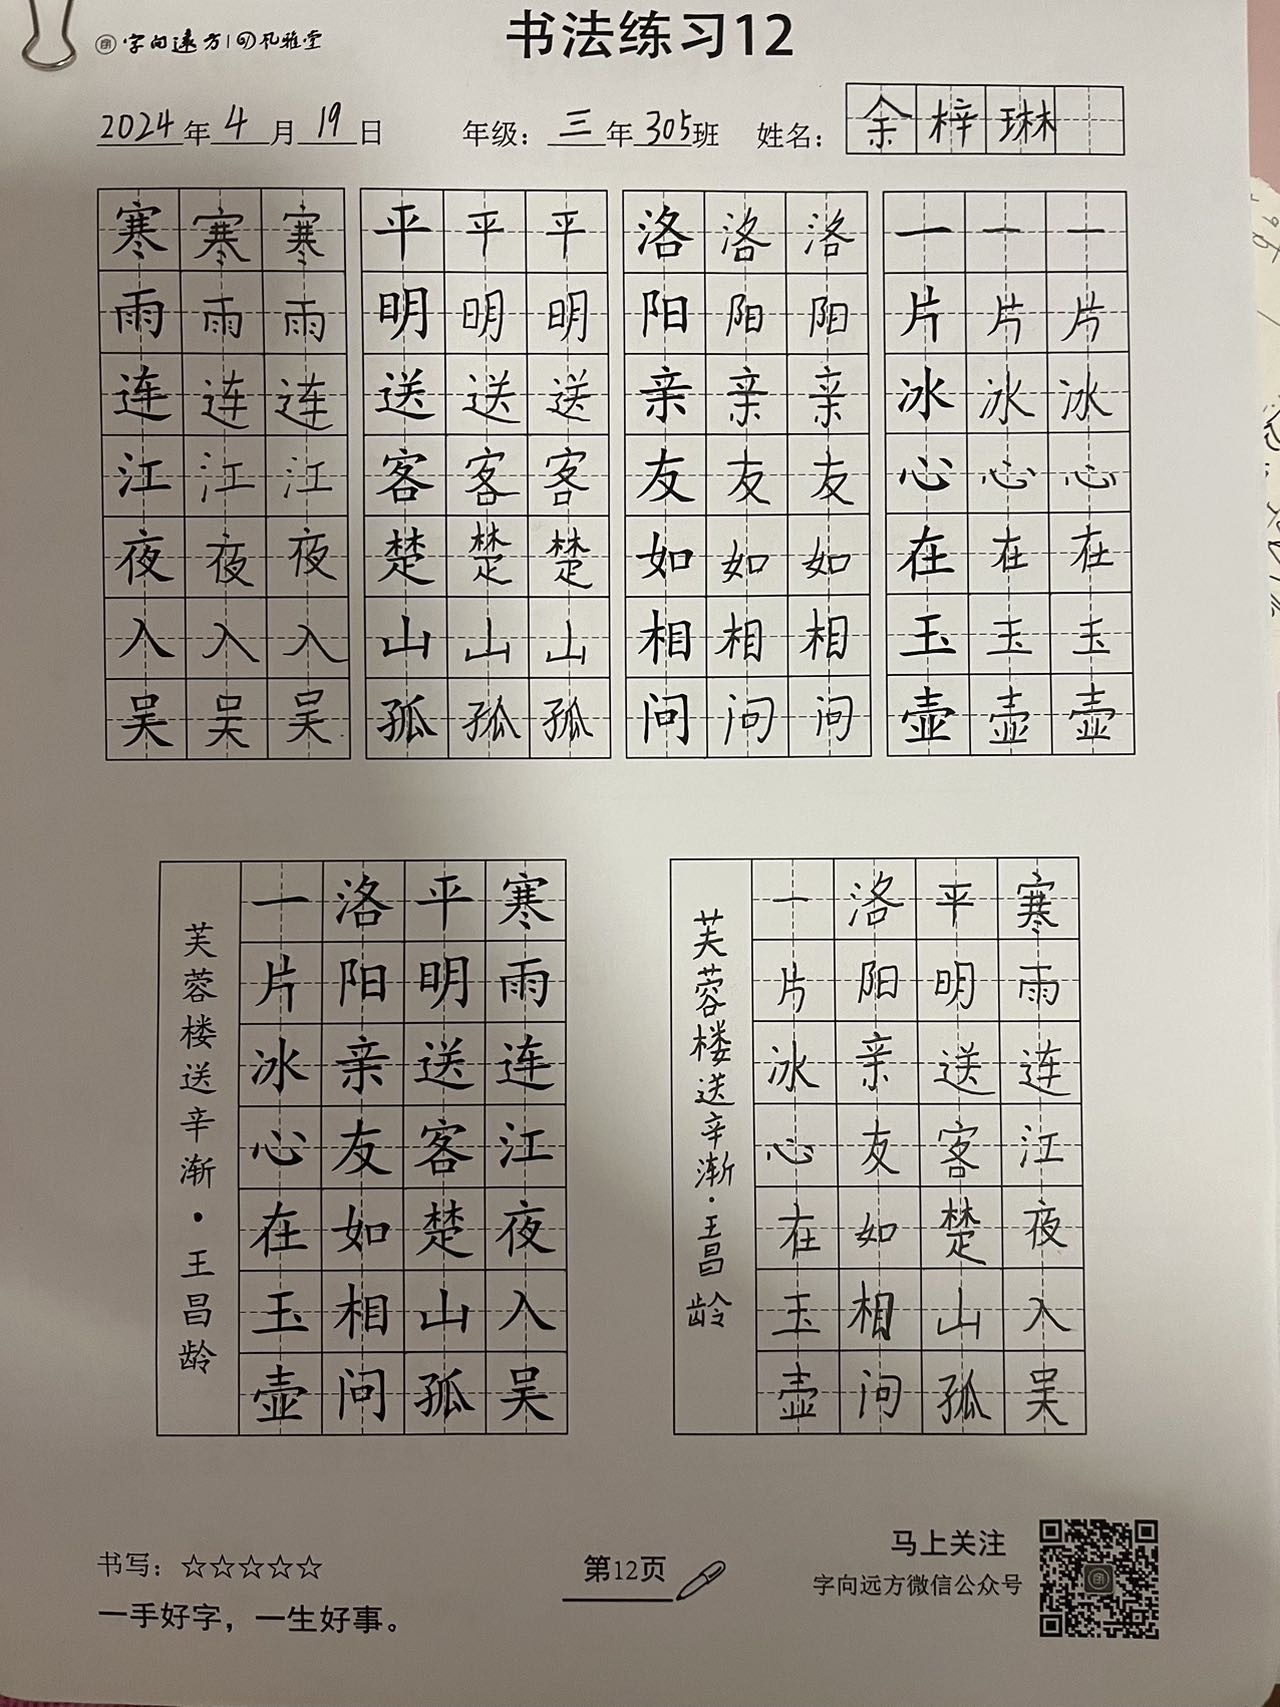 字向远方 风雅堂
书法练习12
2024年4月19日 年级：三年305班 姓名：余梓琳
寒寒寒 平平平 洛洛洛 一一一
雨雨雨 明明明 阳阳阳 片片片
连连连 送送送 亲亲亲 冰冰冰
江江江 客客客 友友友 心心心
夜夜夜 楚楚楚 如如如 在在在
入入入 山山山 相相相 玉玉玉
吴吴吴 孤孤孤 问问问 壶壶壶
寒雨连江夜入吴
平明送客楚山孤
洛阳亲友如相问
一片冰心在玉壶
芙蓉楼送辛渐·王昌龄
寒雨连江夜入吴
平明送客楚山孤
洛阳亲友如相问
一片冰心在玉壶
芙蓉楼送辛渐·王昌龄
书写：☆☆☆☆☆
一手好字，一生好事。
第12页
马上关注
字向远方微信公众号